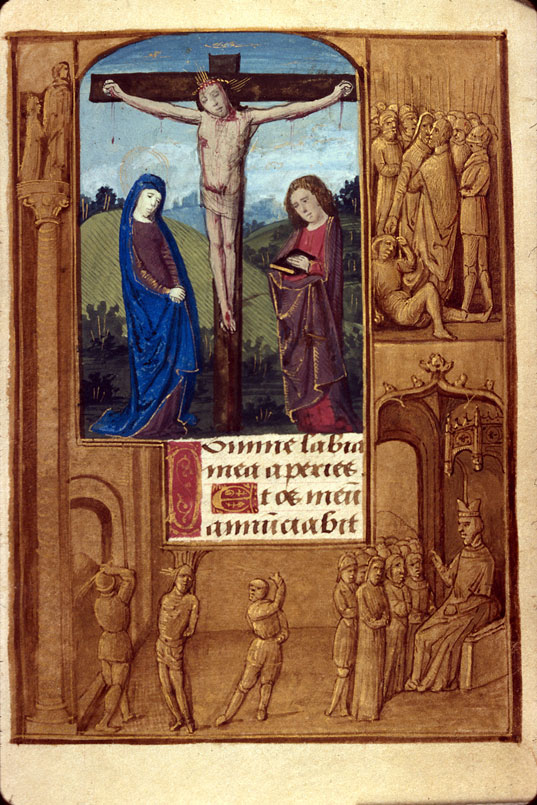 Domine labia
mea aperies.
Et os meū
annūciabit